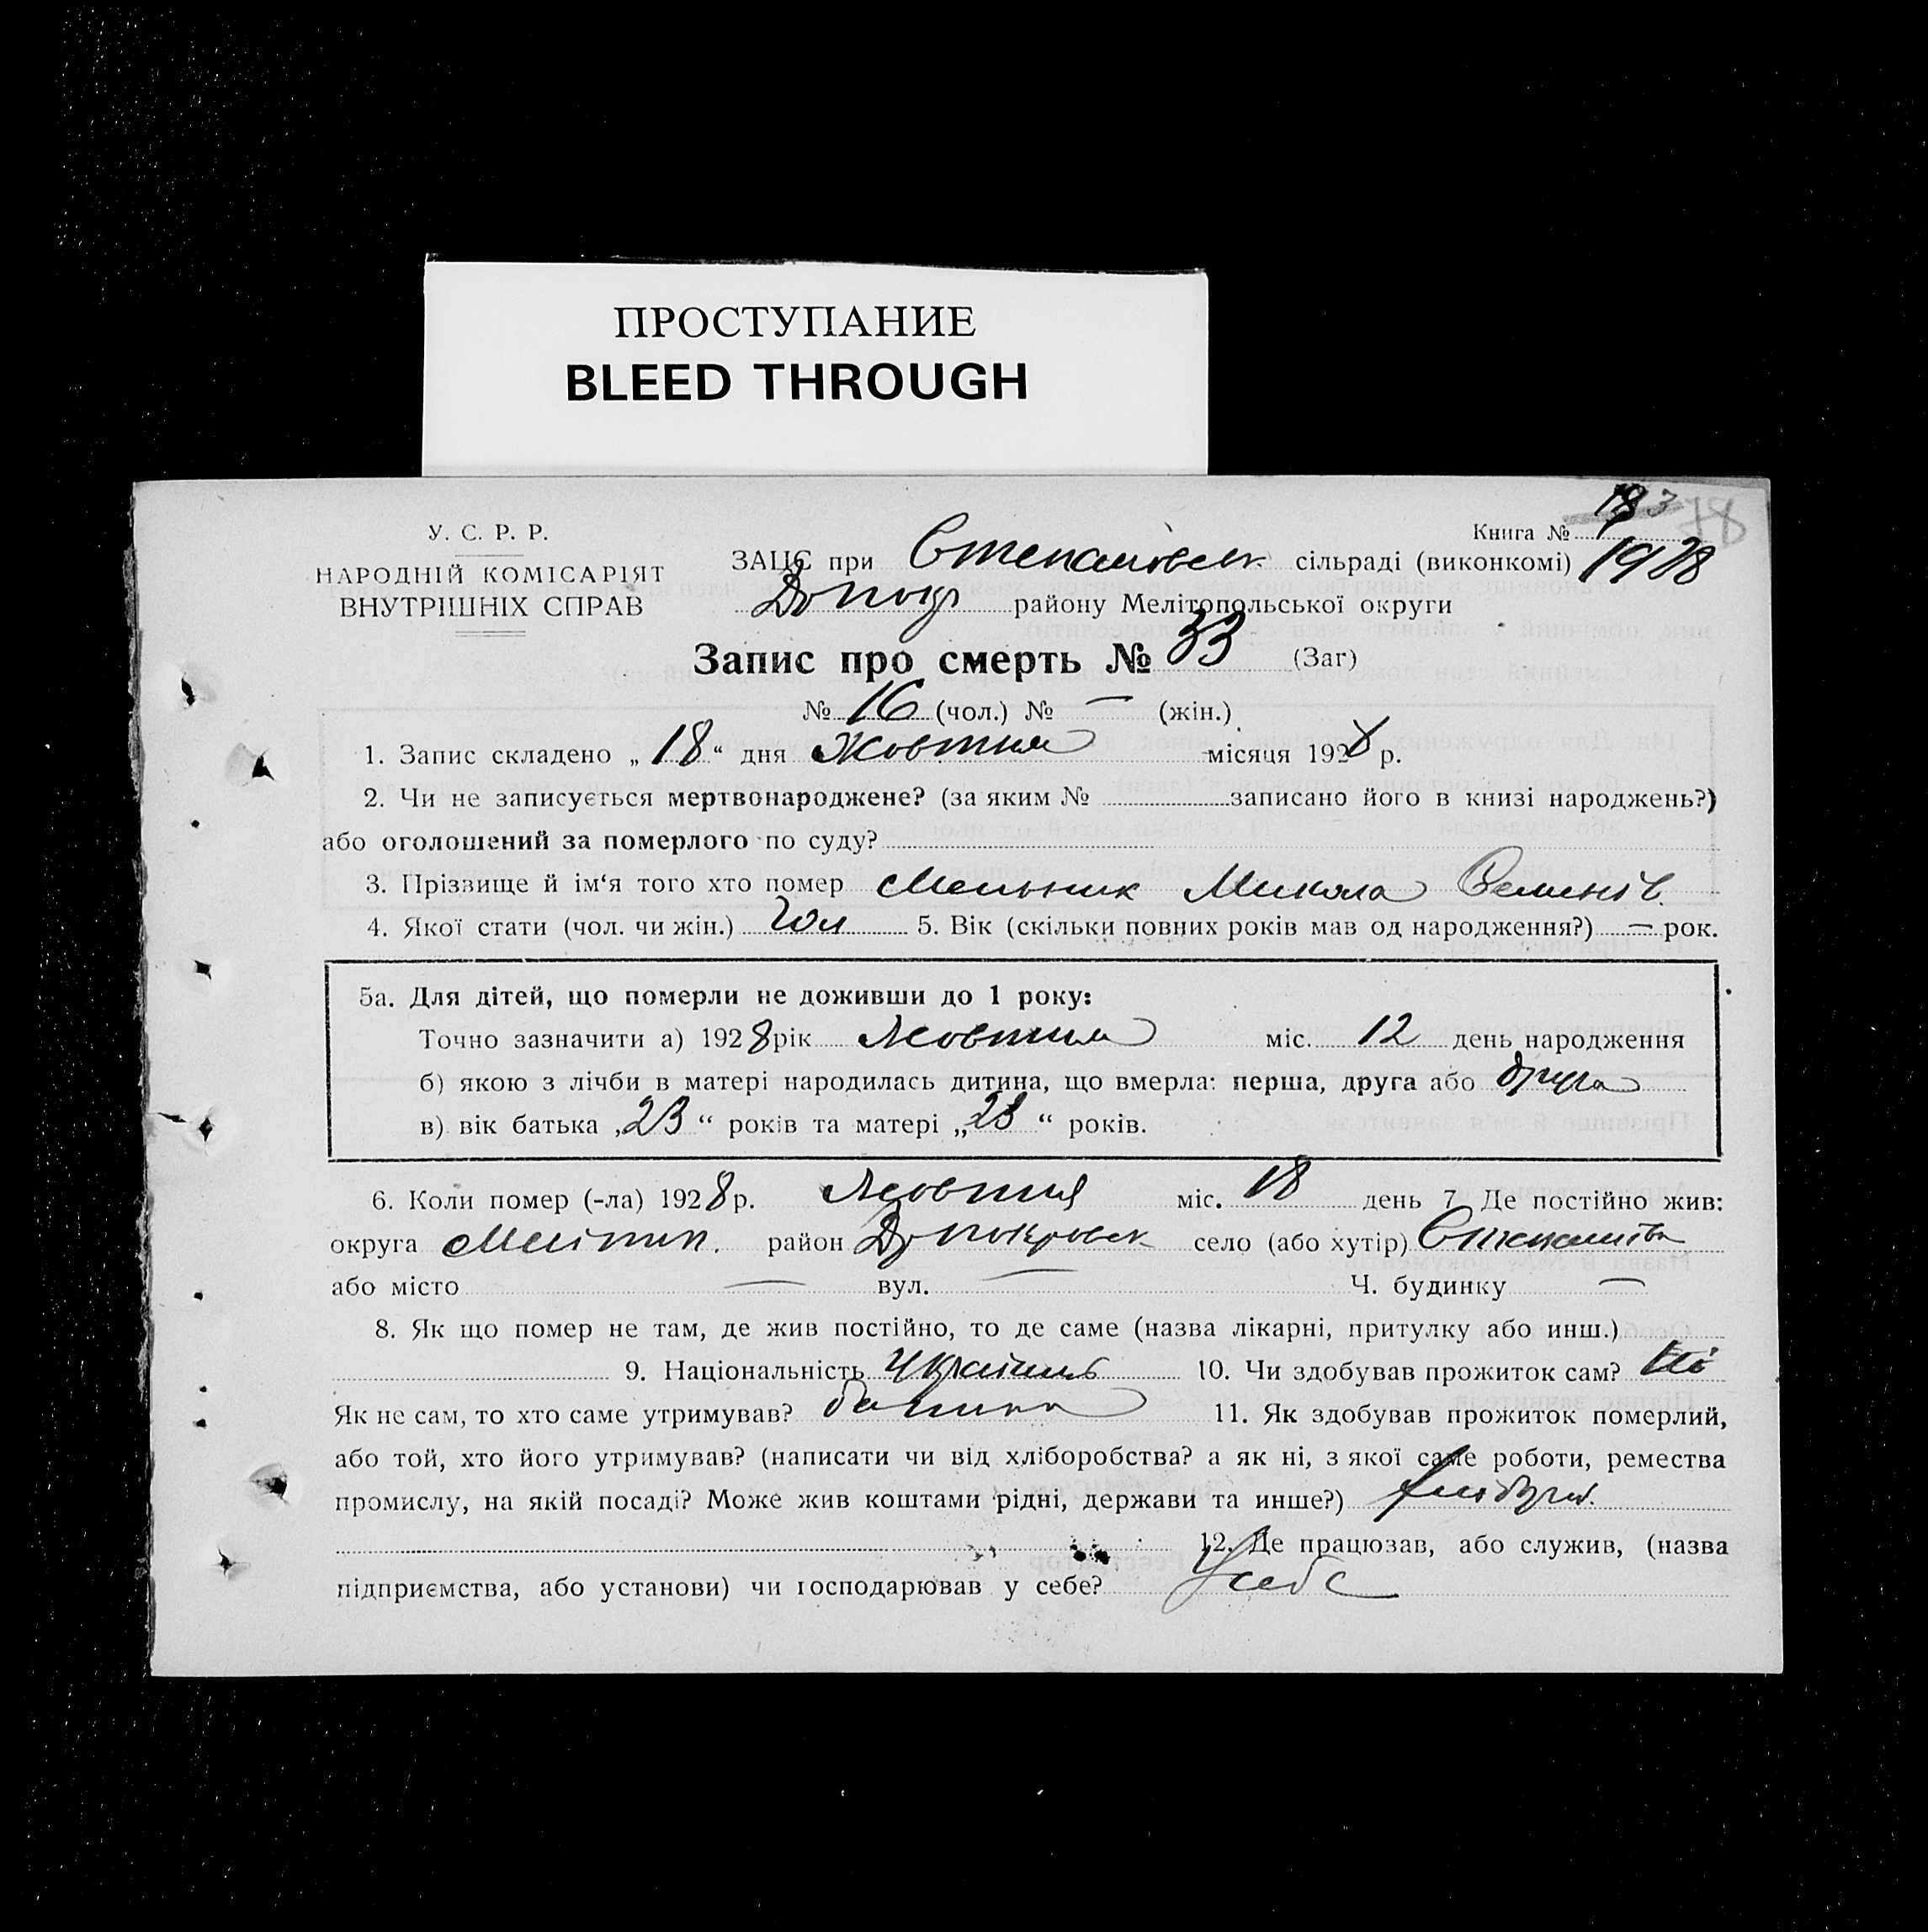 ПРОСТУПАНИЕ
BLEED THROUGH
78
Книга №
1928
У. С. Р. Р.
НАРОДНІЙ КОМІСАРІЯТ
ВНУТРІШНІХ СПРАВ
ЗАЦС при Степанівськ сільраді (виконкомі)
району Мелітопольської округи
Запис про смерть № 33 (Заг)
№ 16 (чол.) № — (жін.)
1. Запис складено „ 18 “ дня Жовтня місяця 1928 р.
2. Чи не записується мертвонароджене? (за яким № записано його в книзі народжень?)
або оголошений за померлого по суду?
3. Прізвище й ім‘я того хто помер Мельник Микола Семенів.
4. Якої стати (чол. чи жін.) чол 5. Вік (скільки повних років мав од народження?) — рок.
5а. Для дітей, що померли не доживши до 1 року:
Точно зазначити а) 1928 рік Жовтня міс. 12 день народження
б) якою з лічби в матері народилась дитина, що вмерла: перша, друга або друга
в) вік батька „23“ років та матері „23“ років.
6. Коли помер (-ла) 1928 р. Жовтня міс. 18 день 7 Де постійно жив:
округа Мелітоп. район село (або хутір) Степанівка
або місто — вул. — Ч. будинку —
8. Як що помер не там, де жив постійно, то де саме (назва лікарні, притулку або инш.)
9. Національність Українець 10. Чи здобував прожиток сам? Ні
Як не сам, то хто саме утримував? батько 11. Як здобував прожиток померлий,
або той, хто його утримував? (написати чи від хліборобства? а як ні, з якої саме роботи, ремества
промислу, на якій посаді? Може жив коштами рідні, держави та инше?)
12. Де працював, або служив, (назва
підприємства, або установи) чи господарював у себе? У себе